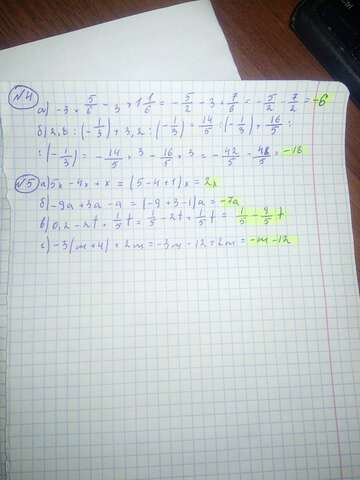 №4
а) -3 × 5/6 - 3 × 1 1/6 = -5/2 - 3 × 7/6 = -5/2 - 7/2 = -6
б) 2,8 : (-1/3) + 3,2 : (-1/3) = 14/5 : (-1/3) + 16/5 :
: (-1/3) = -14/5 × 3 - 16/5 × 3 = -42/5 - 48/5 = -18
№5 а) 5x - 4x + x = (5 - 4 + 1) x = 2x
б) -9a + 3a - a = (-9 + 3 - 1) a = -7a
в) 0,2 - 2t + 1/5 t = 1/5 - 2t + 1/5 t = 1/5 - 9/5 t
г) -3(m + 4) + 2m = -3m - 12 + 2m = -m - 12